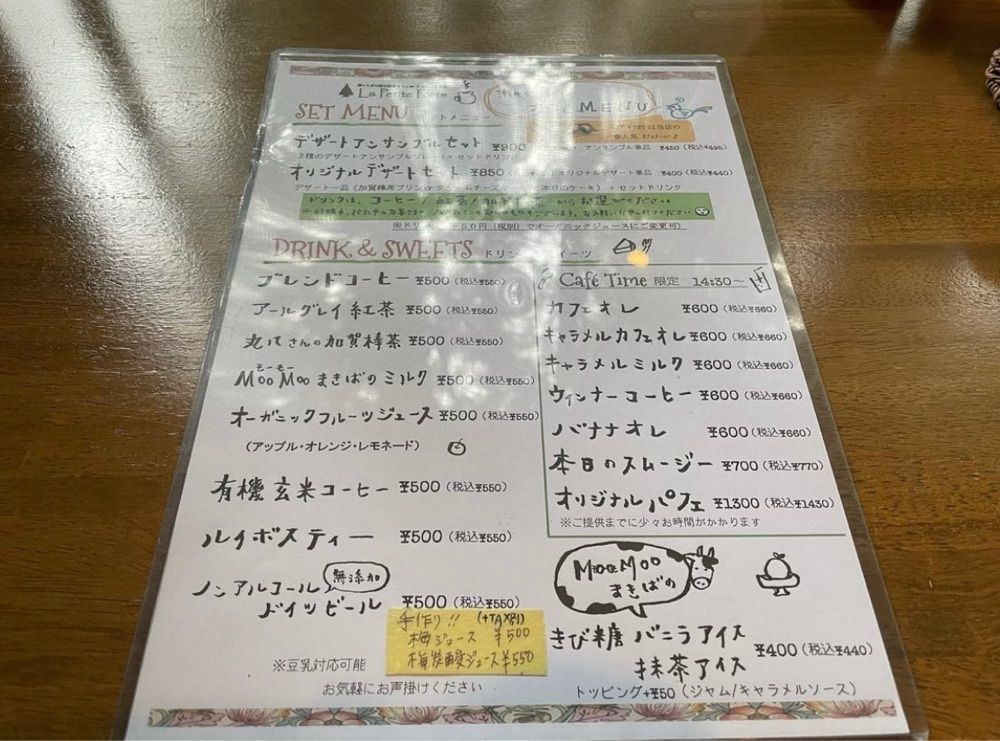 La Petite Porte
SET MENU
MENU
デザートアンサンブルセット ¥900
アンサンブル単品 ¥450 (税込¥495)
3種のデザートアンサンブルプレート + セットドリンク
オリジナルデザートセット ¥850
オリジナルデザート単品 ¥400 (税込¥440)
デザート一品 (加賀棒茶プリン or 本日のケーキ) + セットドリンク
ドリンクは、コーヒー/紅茶/加 からお選びください
50円 (税別) でオーガニックジュースにご変更可)
DRINK & SWEETS
ブレンドコーヒー ¥500 (税込¥550)
アールグレイ紅茶 ¥500 (税込¥550)
丸八さんの加賀棒茶 ¥500 (税込¥550)
モーモー
MooMooまきばのミルク ¥500 (税込¥550)
オーガニックフルーツジュース ¥500 (税込¥550)
(アップル・オレンジ・レモネード)
有機玄米コーヒー ¥500 (税込¥550)
ルイボスティー ¥500 (税込¥550)
ノンアルコール 無添加
ドイツビール ¥500 (税込¥550)
手作り!! (+TAX別)
梅ジュース ¥500
¥550
※豆乳対応可能
お気軽にお声掛けください
Café Time 限定 14:30～
カフェオレ ¥600 (税込¥660)
キャラメルカフェオレ ¥600 (税込¥660)
キャラメルミルク ¥600 (税込¥660)
ウィンナーコーヒー ¥600 (税込¥660)
バナナオレ ¥600 (税込¥660)
本日のスムージー ¥700 (税込¥770)
オリジナルパフェ ¥1300 (税込¥1430)
※ご提供までに少々お時間がかかります
MooMoo
まきばの
きび糖バニラアイス
抹茶アイス ¥400 (税込¥440)
トッピング+¥50 (ジャム/キャラメルソース)